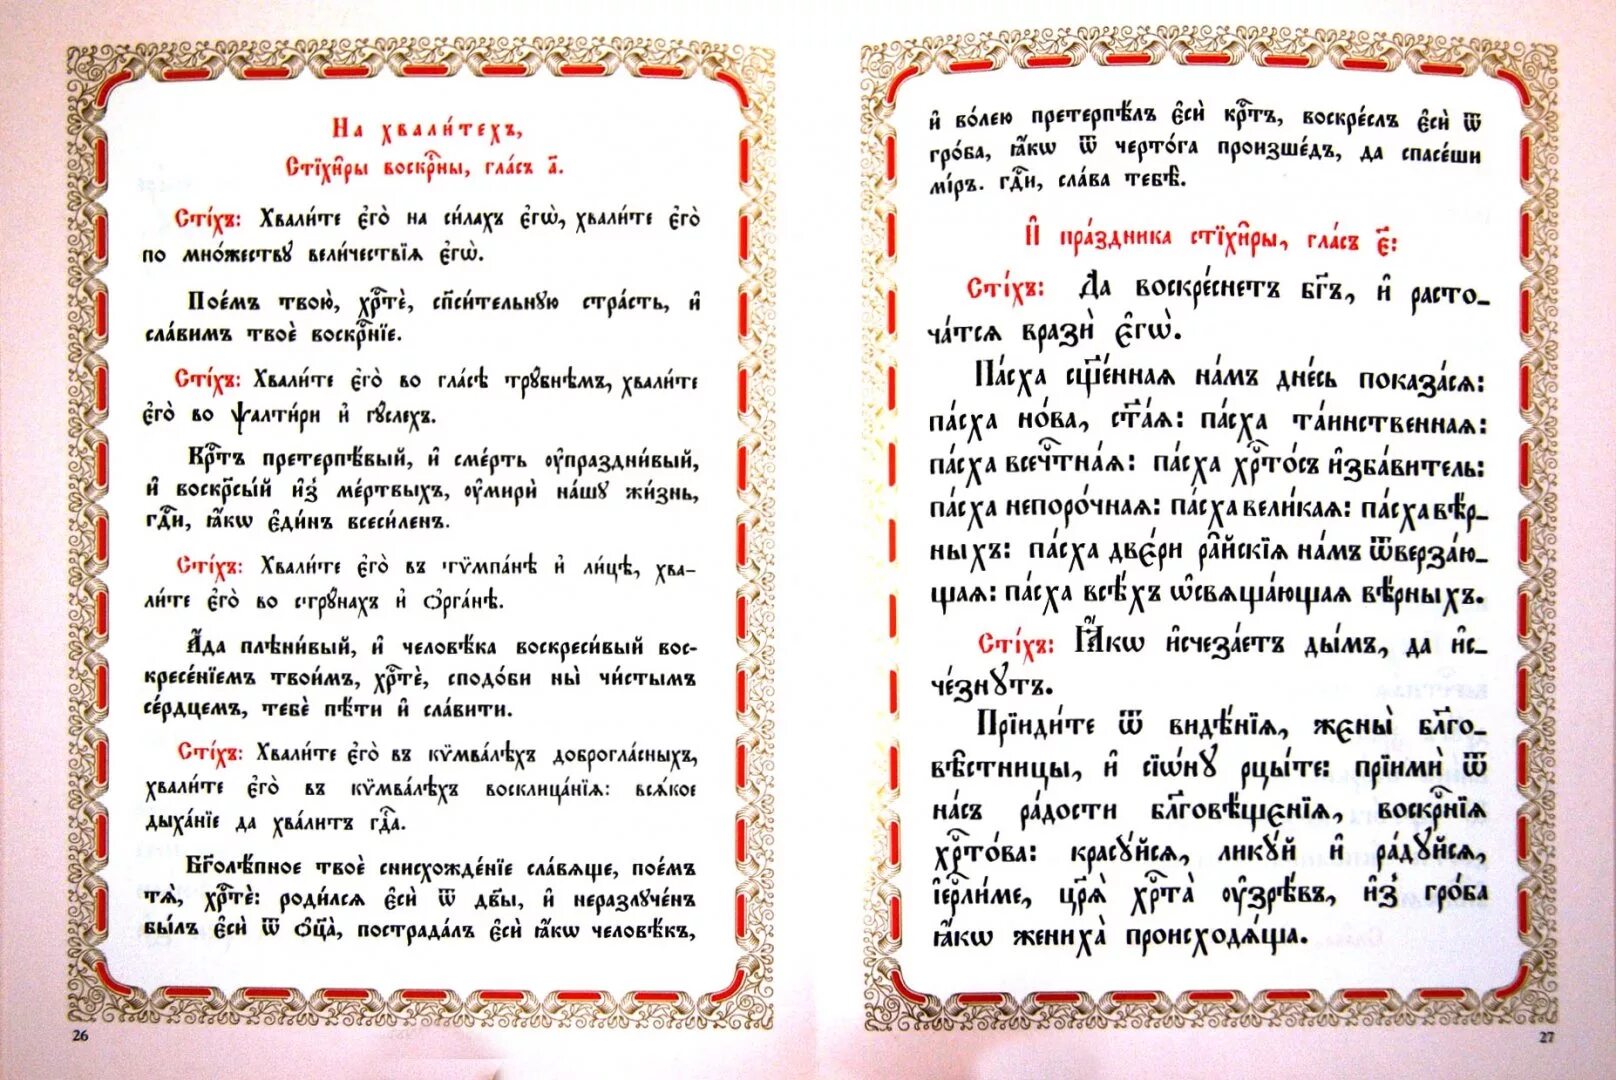 На хвали́техъ,
Стїхи̑ры воскрⷭ҇ны, гла́съ а҃.
Сті́хъ: Хвали́те є҆го̀ на си́лахъ є҆гѡ̀, хвали́те є҆го̀
по мно́жествꙋ вели́чествїѧ є҆гѡ̀.
Пое́мъ твою̀, хрⷭ҇тѐ, сп҃си́тельнꙋю стра́сть, и҆
сла́вимъ твоѐ воскрⷭ҇нїе.
Сті́хъ: Хвали́те є҆го̀ во гла́сѣ трꙋ́бнѣмъ, хвали́те
є҆го̀ во ѱалти́ри и҆ гꙋ́слехъ.
Крⷭ҇тъ претерпѣ́вый, и҆ сме́рть оу҆праздни́вый,
и҆ воскр҃сы́й и҆з̾ ме́ртвыхъ, оу҆мирѝ на́шꙋ жи́знь,
гдⷭ҇и, ꙗ҆́кѡ є҆ди́нъ всеси́ленъ.
Сті́хъ: Хвали́те є҆го̀ въ тѷмпа́нѣ и҆ ли́цѣ, хва-
ли́те є҆го̀ во стрꙋ́нахъ и҆ ѻ҆рга́нѣ.
А҆́да плѣни́вый, и҆ человѣ́ка воскреси́вый вос-
кресе́нїемъ твои́мъ, хрⷭ҇тѐ, сподо́би ны̀ чи́стымъ
се́рдцемъ, тебѐ пѣ́ти и҆ сла́вити.
Сті́хъ: Хвали́те є҆го̀ въ кѷмва́лѣхъ доброгла́сныхъ,
хвали́те є҆го̀ въ кѷмва́лѣхъ восклица́нїѧ: всѧ́кое
дыха́нїе да хва́литъ гдⷭ҇а.
Бг҃олѣ́пное твоѐ снисхожде́нїе сла́вѧще, пое́мъ
тѧ̀, хрⷭ҇тѐ: роди́лсѧ є҆сѝ ѿ дв҃ы, и҆ неразлꙋ́ченъ
бы́лъ є҆сѝ ѿ ѻ҆ц҃а̀, пострада́лъ є҆сѝ ꙗ҆́кѡ человѣ́къ,
26
и҆ во́лею претерпѣ́лъ є҆сѝ крⷭ҇тъ, воскре́слъ є҆сѝ ѿ
гро́ба, ꙗ҆́кѡ ѿ черто́га произше́дъ, да спасе́ши
мі́ръ. гдⷭ҇и, сла́ва тебѣ̀.
И҆ пра́здника стїхи̑ры, гла́съ є҃:
Сті́хъ: Да воскре́снетъ бг҃ъ, и҆ расто-
ча́тсѧ вразѝ є҆гѡ̀.
Па́сха сщ҃е́ннаѧ на́мъ дне́сь показа́сѧ:
па́сха но́ва, ст҃а́ѧ: па́сха та́инственнаѧ:
па́сха всечⷭ҇тна́ѧ: па́сха хрⷭ҇то́съ и҆зба́витель:
па́сха непоро́чнаѧ: па́сха вели́каѧ: па́сха вѣ́р-
ныхъ: па́сха две́ри ра̑йскїѧ на́мъ ѿверза́ю-
щаѧ: па́сха всѣ́хъ ѡ҆свѧща́ющаѧ вѣ́рныхъ.
Сті́хъ: Ꙗ҆́кѡ и҆счеза́етъ ды́мъ, да и҆с-
че́знꙋтъ.
Прїиди́те ѿ видѣ́нїѧ, жєны̀ бл҃го-
вѣ̑стницы, и҆ сїѡ́нꙋ рцы́те: прїимѝ ѿ
на́съ ра́дости бл҃говѣ́щєнїѧ, воскрⷭ҇нїѧ
хрⷭ҇то́ва: красꙋ́йсѧ, ликꙋ́й и҆ ра́дꙋйсѧ,
і҆ерⷭ҇ли́ме, цр҃ѧ̀ хрⷭ҇та̀ оу҆зрѣ́въ, и҆з̾ гро́ба
ꙗ҆́кѡ жениха̀ происходѧ́ща.
27